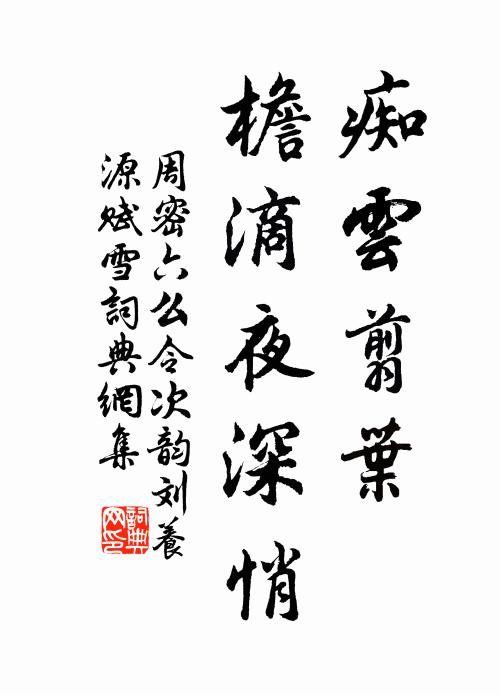 痴雲翦葉
檐滴夜深悄
周密六么令次韵刘養
源赋雪詞典網集
詞典网印